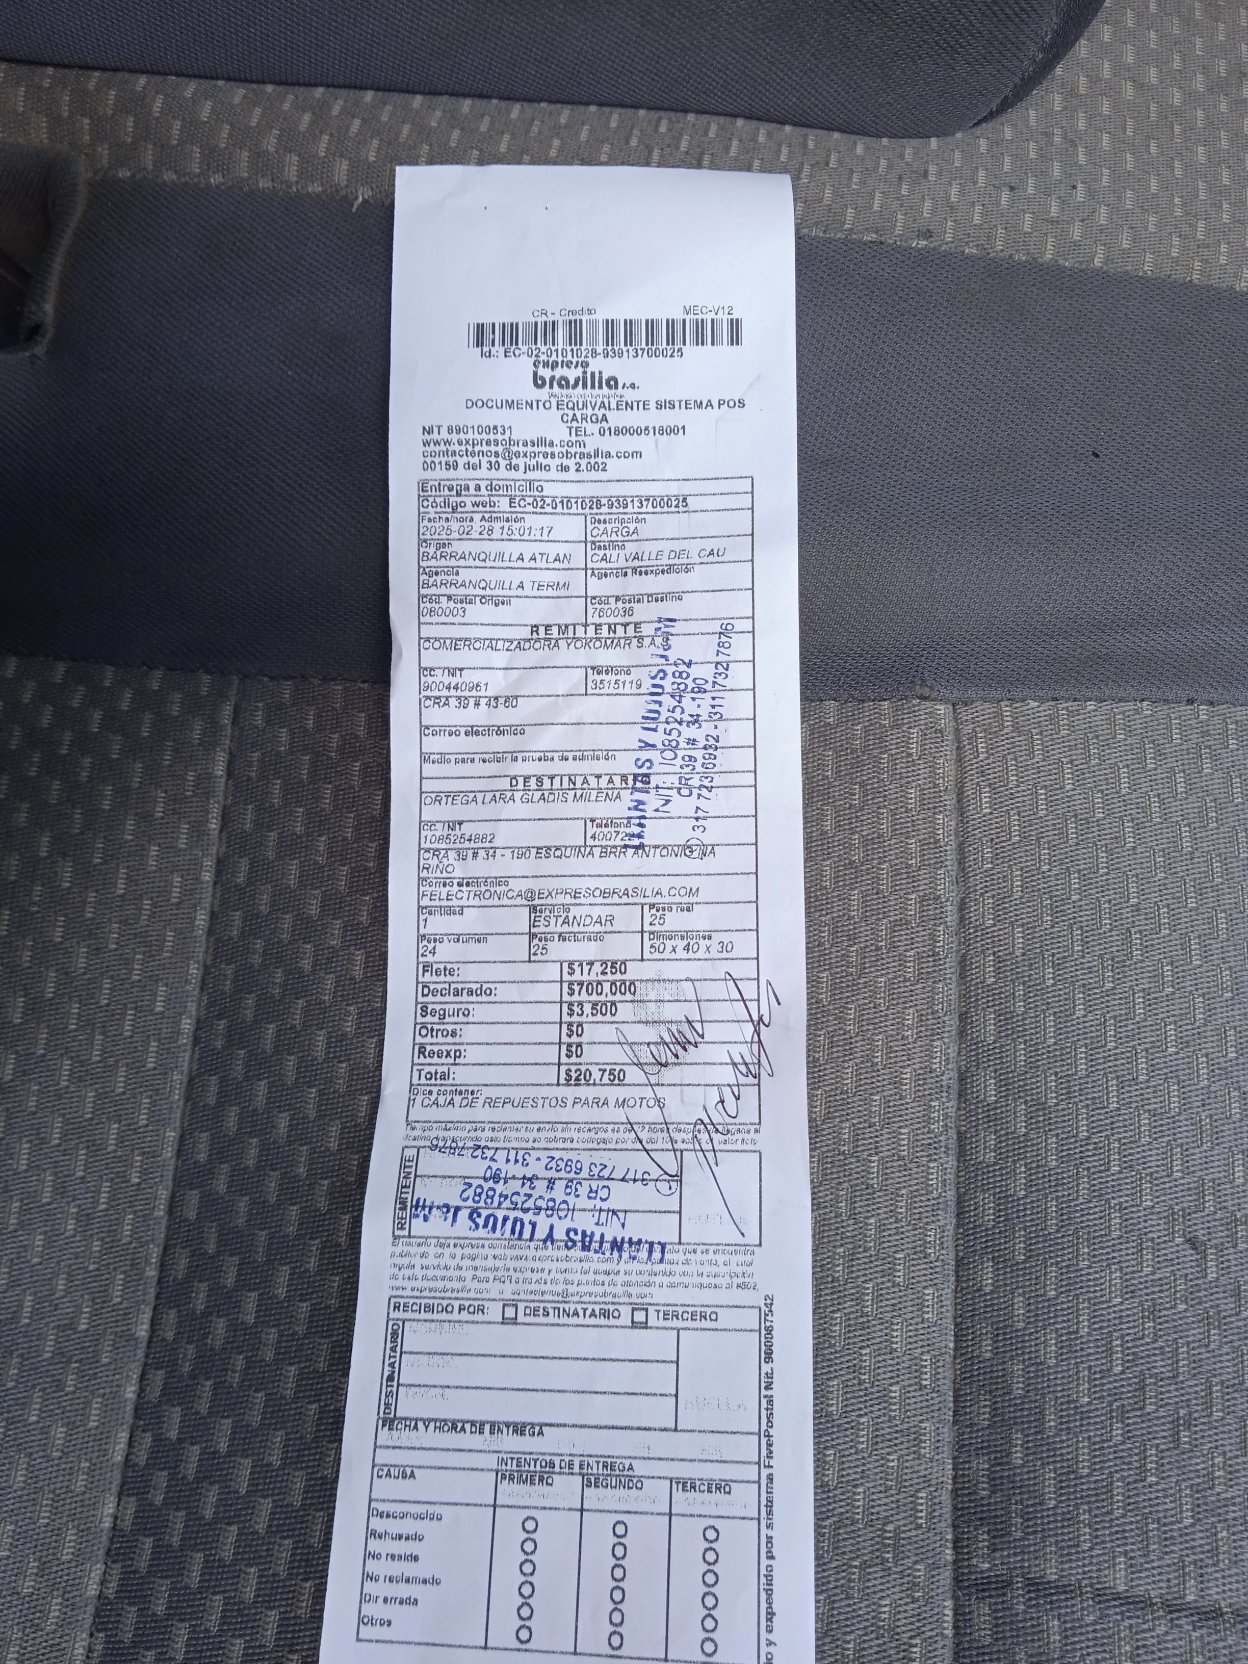 CR - Credito MEC-V12
Id.: EC-02-0101028-93913700025
expreso
brasilia s.a.
DOCUMENTO EQUIVALENTE SISTEMA POS
CARGA
NIT 890100531 TEL. 018000518001
www.expresobrasilia.com
contactenos@expresobrasilia.com
00159 del 30 de julio de 2.002
Entrega a domicilio
Código web: EC-02-0101028-93913700025
Fecha/hora Admisión Descripción
2025-02-28 15:01:17 CARGA
Origen Destino
BARRANQUILLA ATLAN CALI VALLE DEL CAU
Agencia Agencia Reexpedición
BARRANQUILLA TERMI
Cód. Postal Origen Cód. Postal Destino
080003 760036
REMITENTE
COMERCIALIZADORA YOKOMAR S.A.S
CC. / NIT Teléfono
900440961 3515119
CRA 39 # 43-60
Correo electrónico
Medio para recibir la prueba de admisión
DESTINATAR
ORTEGA LARA GLADIS MILENA
CC. / NIT Teléfono
1085254882 40072
CRA 39 # 34 - 190 ESQUINA BRR ANTONIO NA
RIÑO
Correo electrónico
FELECTRONICA@EXPRESOBRASILIA.COM
Cantidad Servicio Peso real
1 ESTANDAR 25
Peso volumen Peso facturado Dimensiones
24 25 50 x 40 x 30
Flete: $17,250
Declarado: $700,000
Seguro: $3,500
Otros: $0
Reexp: $0
Total: $20,750
Dice contener:
1 CAJA DE REPUESTOS PARA MOTOS
LLANTAS Y LUJOS J&M
NIT: 1085254882
CR 39 # 34 -190
317 723 6932 - 311 732 7876
REMITENTE
LLANTAS Y LUJOS J&M
NIT: 1085254882
CR 39 # 34 -190
317 723 6932 - 311 732 7876
publicado en la pagina web www.expresobrasilia.com y en los puntos de venta, el cual
regula servicio de mensajería expresa y como tal acepta su contenido con la suscripción
de este documento. Para PQR a través de los puntos de atención o comuníquese al #502,
www.expresobrasilia.com o contactenos@expresobrasilia.com
RECIBIDO POR: DESTINATARIO TERCERO
DESTINATARIO
HUELLA
FECHA Y HORA DE ENTREGA
INTENTOS DE ENTREGA
CAUSA PRIMERO SEGUNDO TERCERO
Desconocido
Rehusado
No reside
No reclamado
Dir errada
Otros
o y expedido por sistema FivePostal Nit. 900087542